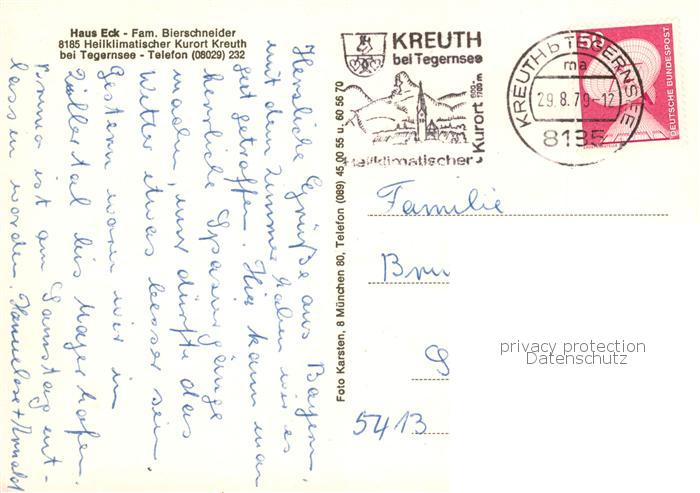 Haus Eck - Fam. Bierschneider
8185 Heilklimatischer Kurort Kreuth
bei Tegernsee - Telefon (08029) 232
Herzliche Grüße aus Bayern,
mit dem Zimmer haben wir es
gut getroffen. Hier kann man
herrliche Spaziergänge
machen, nur dürfte das
Wetter etwas besser sein.
Gestern waren wir im
Zillertal bis Mayerhofen.
ist am Samstag ent-
lassen worden. Hannelore +
Foto Karsten, 8 München 80, Telefon (089) 45 00 55 u. 60 56 70
KREUTH
bei Tegernsee
Heilklimatischer Kurort
800-
KREUTH b TEGERNSEE
ma
29.8.79-12
8185
50
DEUTSCHE BUNDESPOST
Familie
5413
privacy protection
Datenschutz